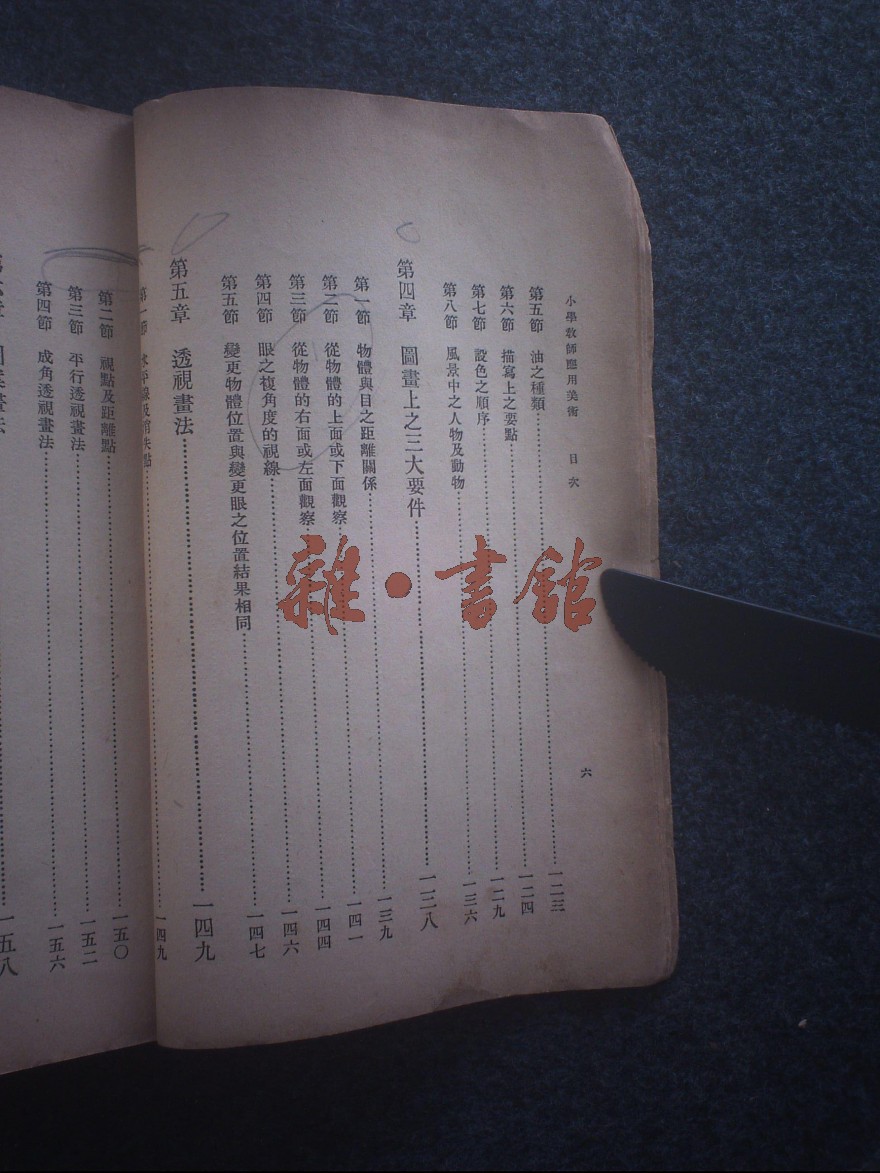 小學教師應用美術　目次
六
第五節　油之種類……一二三
第六節　描寫上之要點……一二四
第七節　設色之順序……一二九
第八節　風景中之人物及動物……一三六
第四章　圖畫上之三大要件……一三八
第一節　物體與目之距離關係……一三九
第二節　從物體的上面或下面觀察……一四一
第三節　從物體的右面或左面觀察……一四四
第四節　眼之複角度的視線……一四六
第五節　變更物體位置與變更眼之位置結果相同……一四七
第五章　透視畫法……一四九
第一節　水平線及消失點……一四九
第二節　視點及距離點……一五〇
第三節　平行透視畫法……一五二
第四節　成角透視畫法……一五六
畫法……一五八
雜・書館